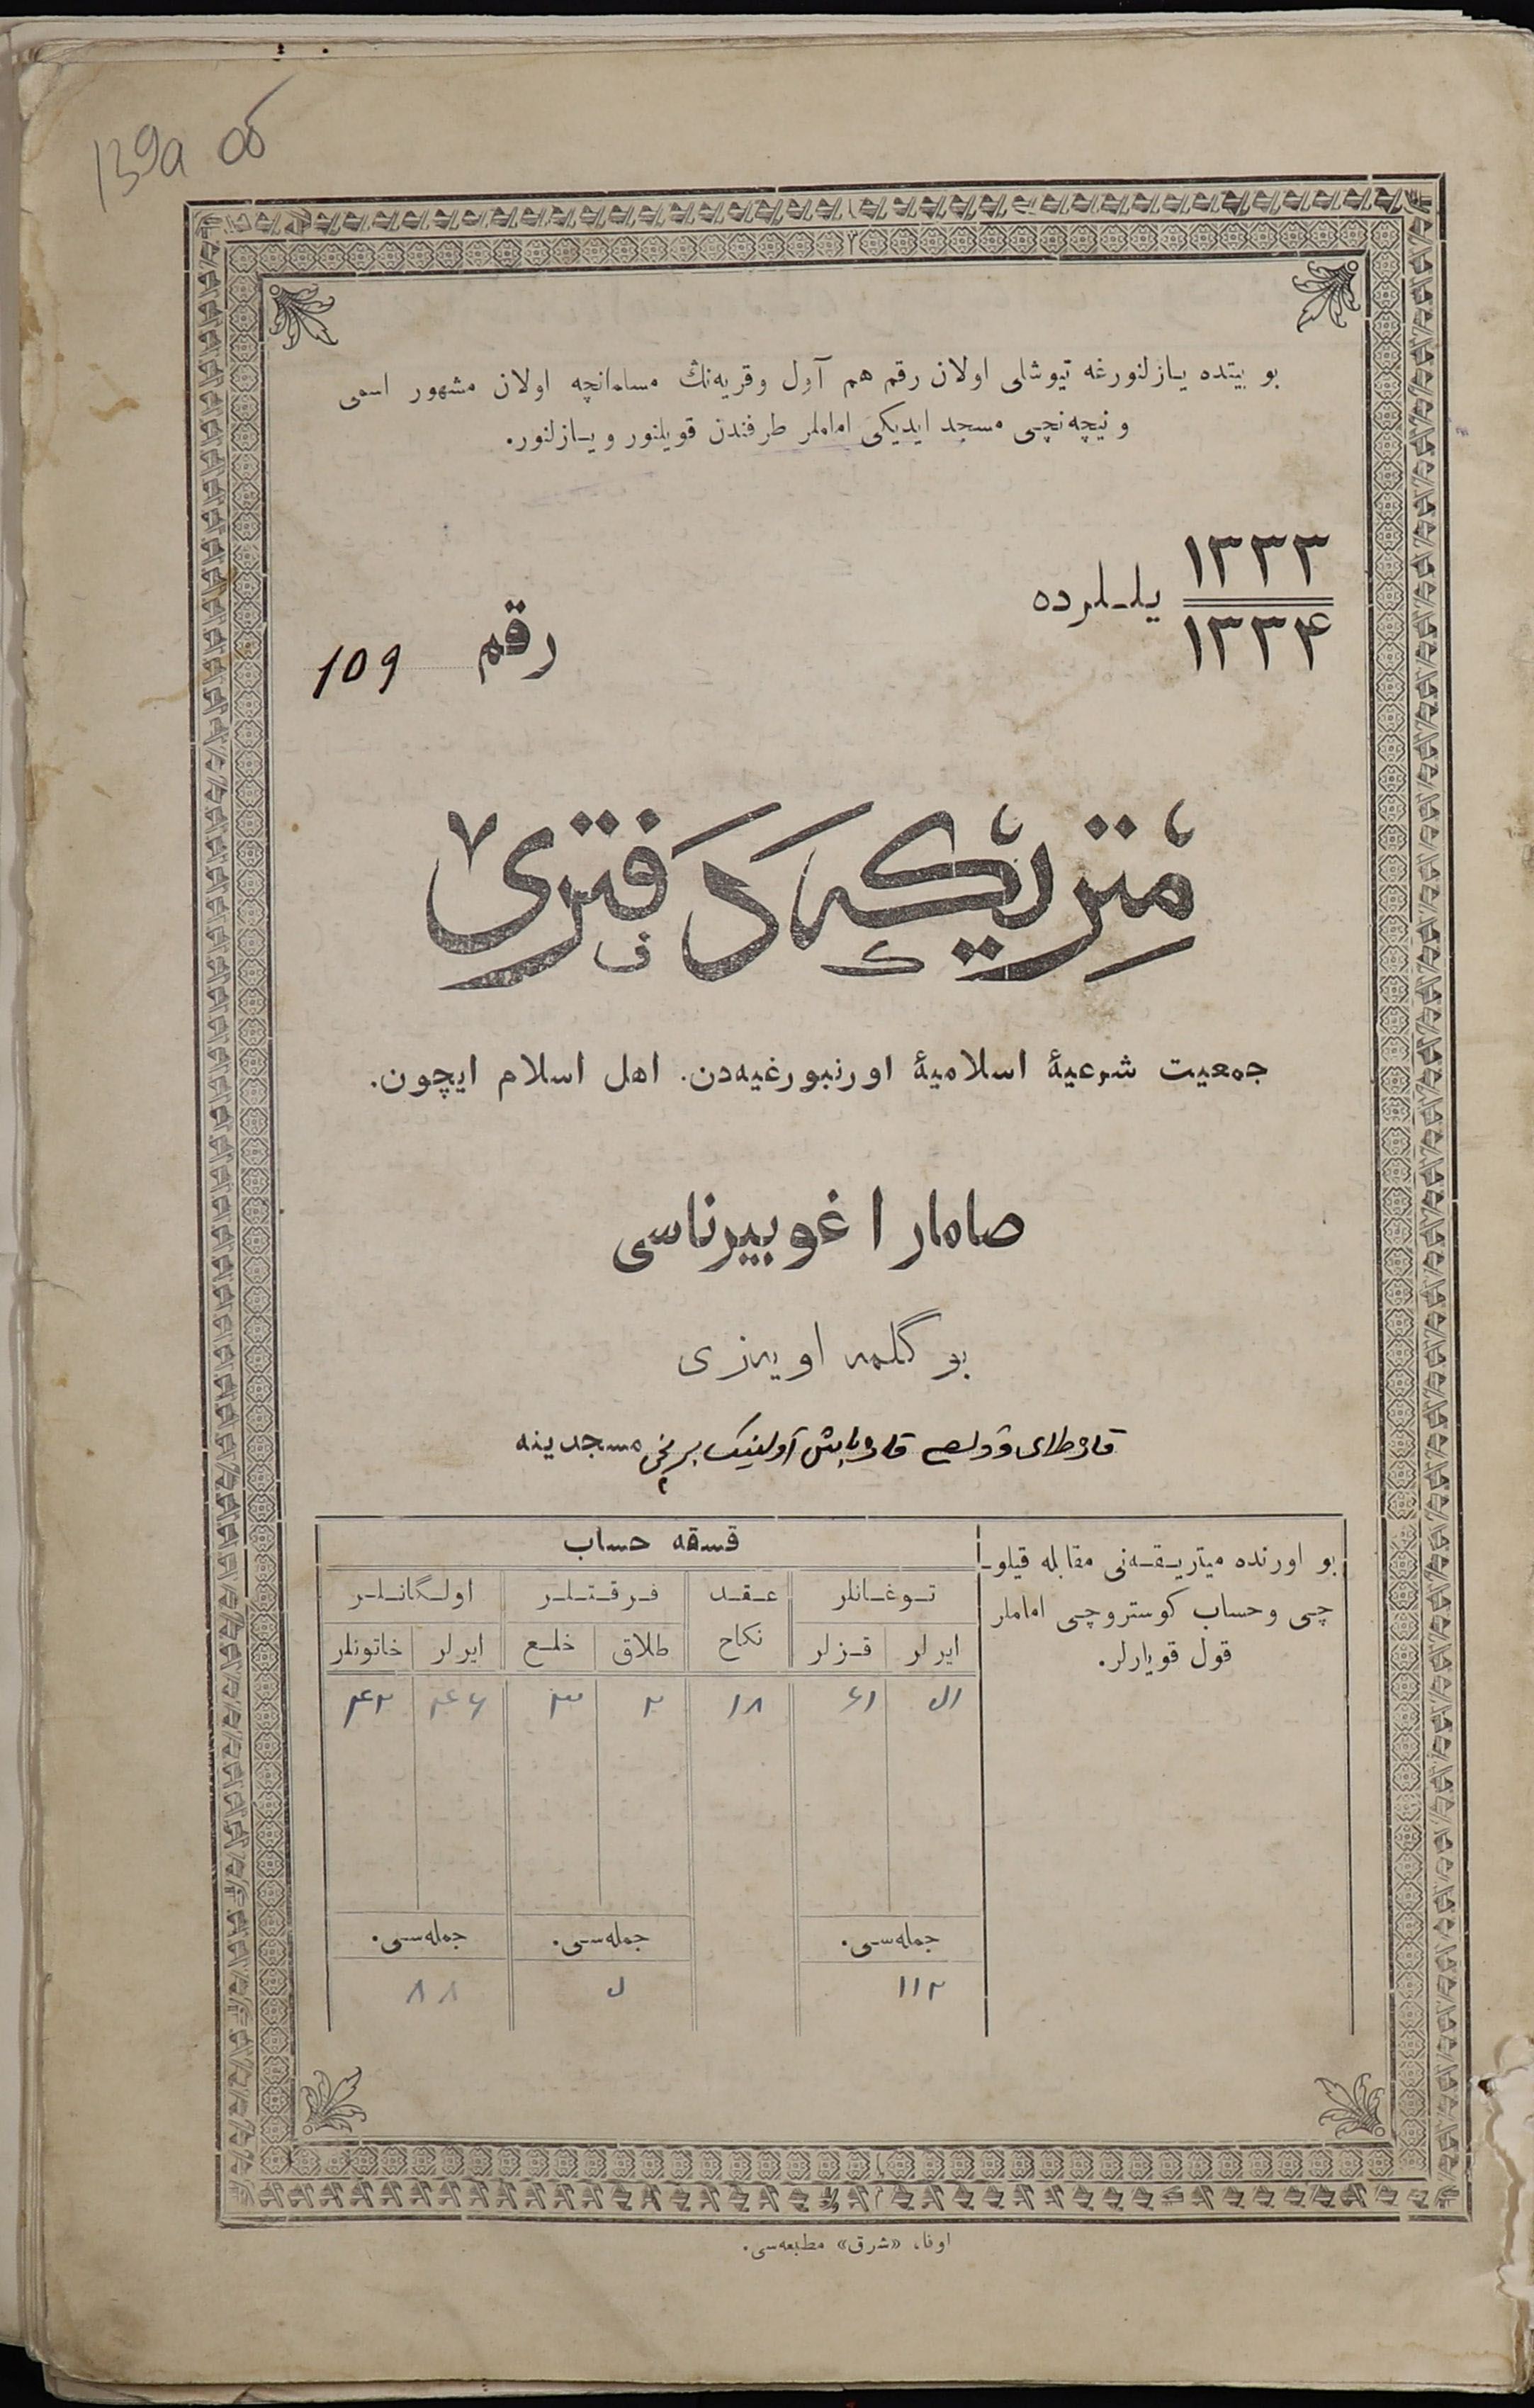 139а об
بو بیتده یازلنورغه تیوشلی اولان رقم هم آول وقریه‌نڭ مسلمانچه اولان مشهور اسمی
و نیچه‌نچی مسجد ایدیکی اماملر طرفندن قویلنور و یازلنور.
۱۳۳۳
۱۳۳۴
یللرده
رقم 109
متریکه دفتری
جمعیت شرعیۀ اسلامیۀ اورنبورغیه‌دن. اهل اسلام ایچون.
صامارا غوبیرناسی
بوگلمه اویه‌زی
آولینیک برنچی مسجدینه
بو اورنده میتریقه‌نی مقابله قیلو-
چی وحساب کوستروچی اماملر
قول قویارلر.
قسقه حساب
توغانلر عقد فرقتلر اولگانلر
ایرلر قزلر نکاح طلاق خلع ایرلر خاتونلر
۵۱ ۶۱ ۱۸ ۲ ۳ ۴۶ ۴۲
جمله‌سی. جمله‌سی. جمله‌سی.
۱۱۲ ۵ ۸۸
اوفا، «شرق» مطبعه‌سی.